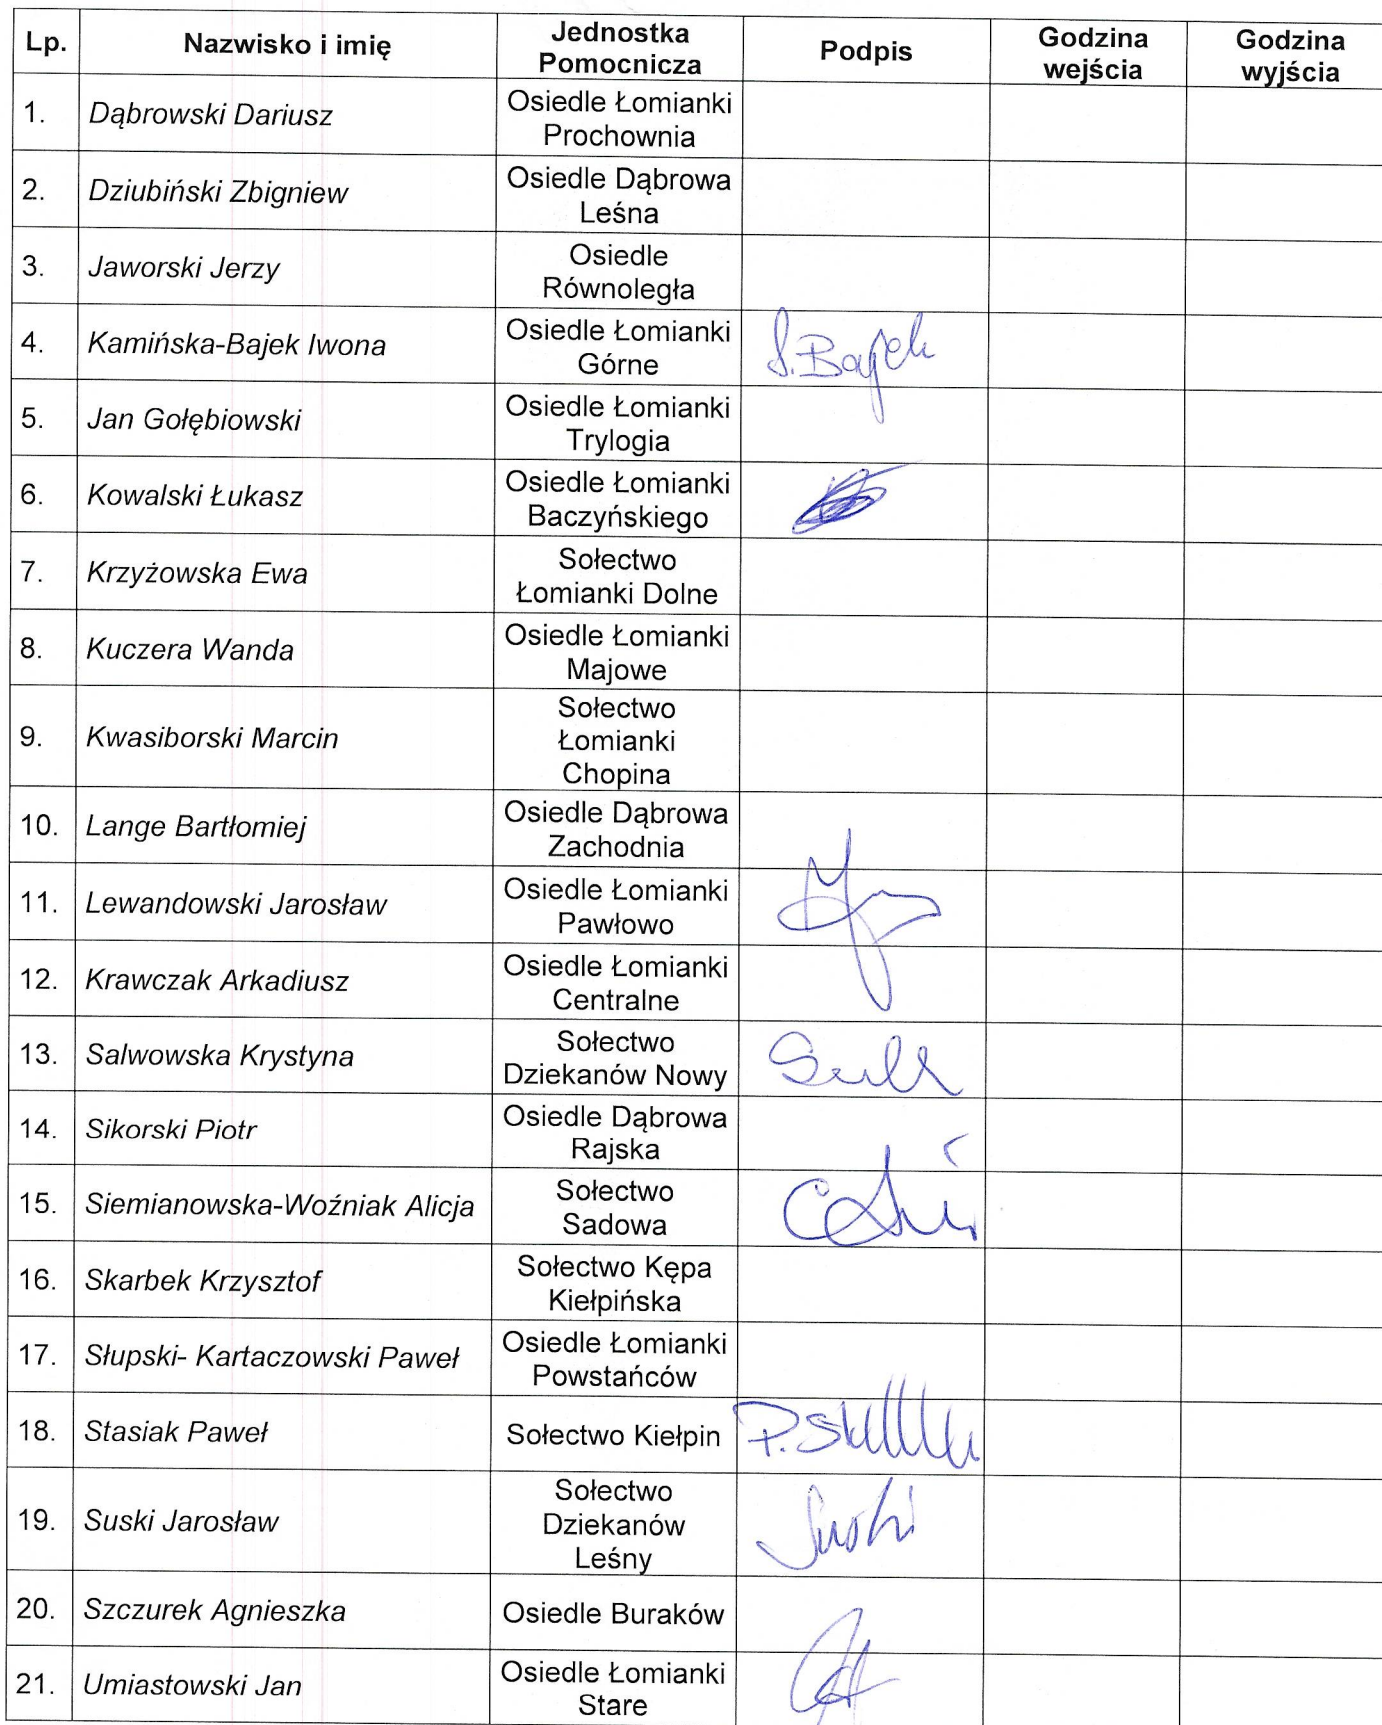 Lp. Nazwisko i imię Jednostka Pomocnicza Podpis Godzina wejścia Godzina wyjścia
1. Dąbrowski Dariusz Osiedle Łomianki Prochownia
2. Dziubiński Zbigniew Osiedle Dąbrowa Leśna
3. Jaworski Jerzy Osiedle Równoległa
4. Kamińska-Bajek Iwona Osiedle Łomianki Górne I.Bajek
5. Jan Gołębiowski Osiedle Łomianki Trylogia
6. Kowalski Łukasz Osiedle Łomianki Baczyńskiego
7. Krzyżowska Ewa Sołectwo Łomianki Dolne
8. Kuczera Wanda Osiedle Łomianki Majowe
9. Kwasiborski Marcin Sołectwo Łomianki Chopina
10. Lange Bartłomiej Osiedle Dąbrowa Zachodnia
11. Lewandowski Jarosław Osiedle Łomianki Pawłowo
12. Krawczak Arkadiusz Osiedle Łomianki Centralne
13. Salwowska Krystyna Sołectwo Dziekanów Nowy
14. Sikorski Piotr Osiedle Dąbrowa Rajska
15. Siemianowska-Woźniak Alicja Sołectwo Sadowa
16. Skarbek Krzysztof Sołectwo Kępa Kiełpińska
17. Słupski- Kartaczowski Paweł Osiedle Łomianki Powstańców
18. Stasiak Paweł Sołectwo Kiełpin
19. Suski Jarosław Sołectwo Dziekanów Leśny Suski
20. Szczurek Agnieszka Osiedle Buraków
21. Umiastowski Jan Osiedle Łomianki Stare